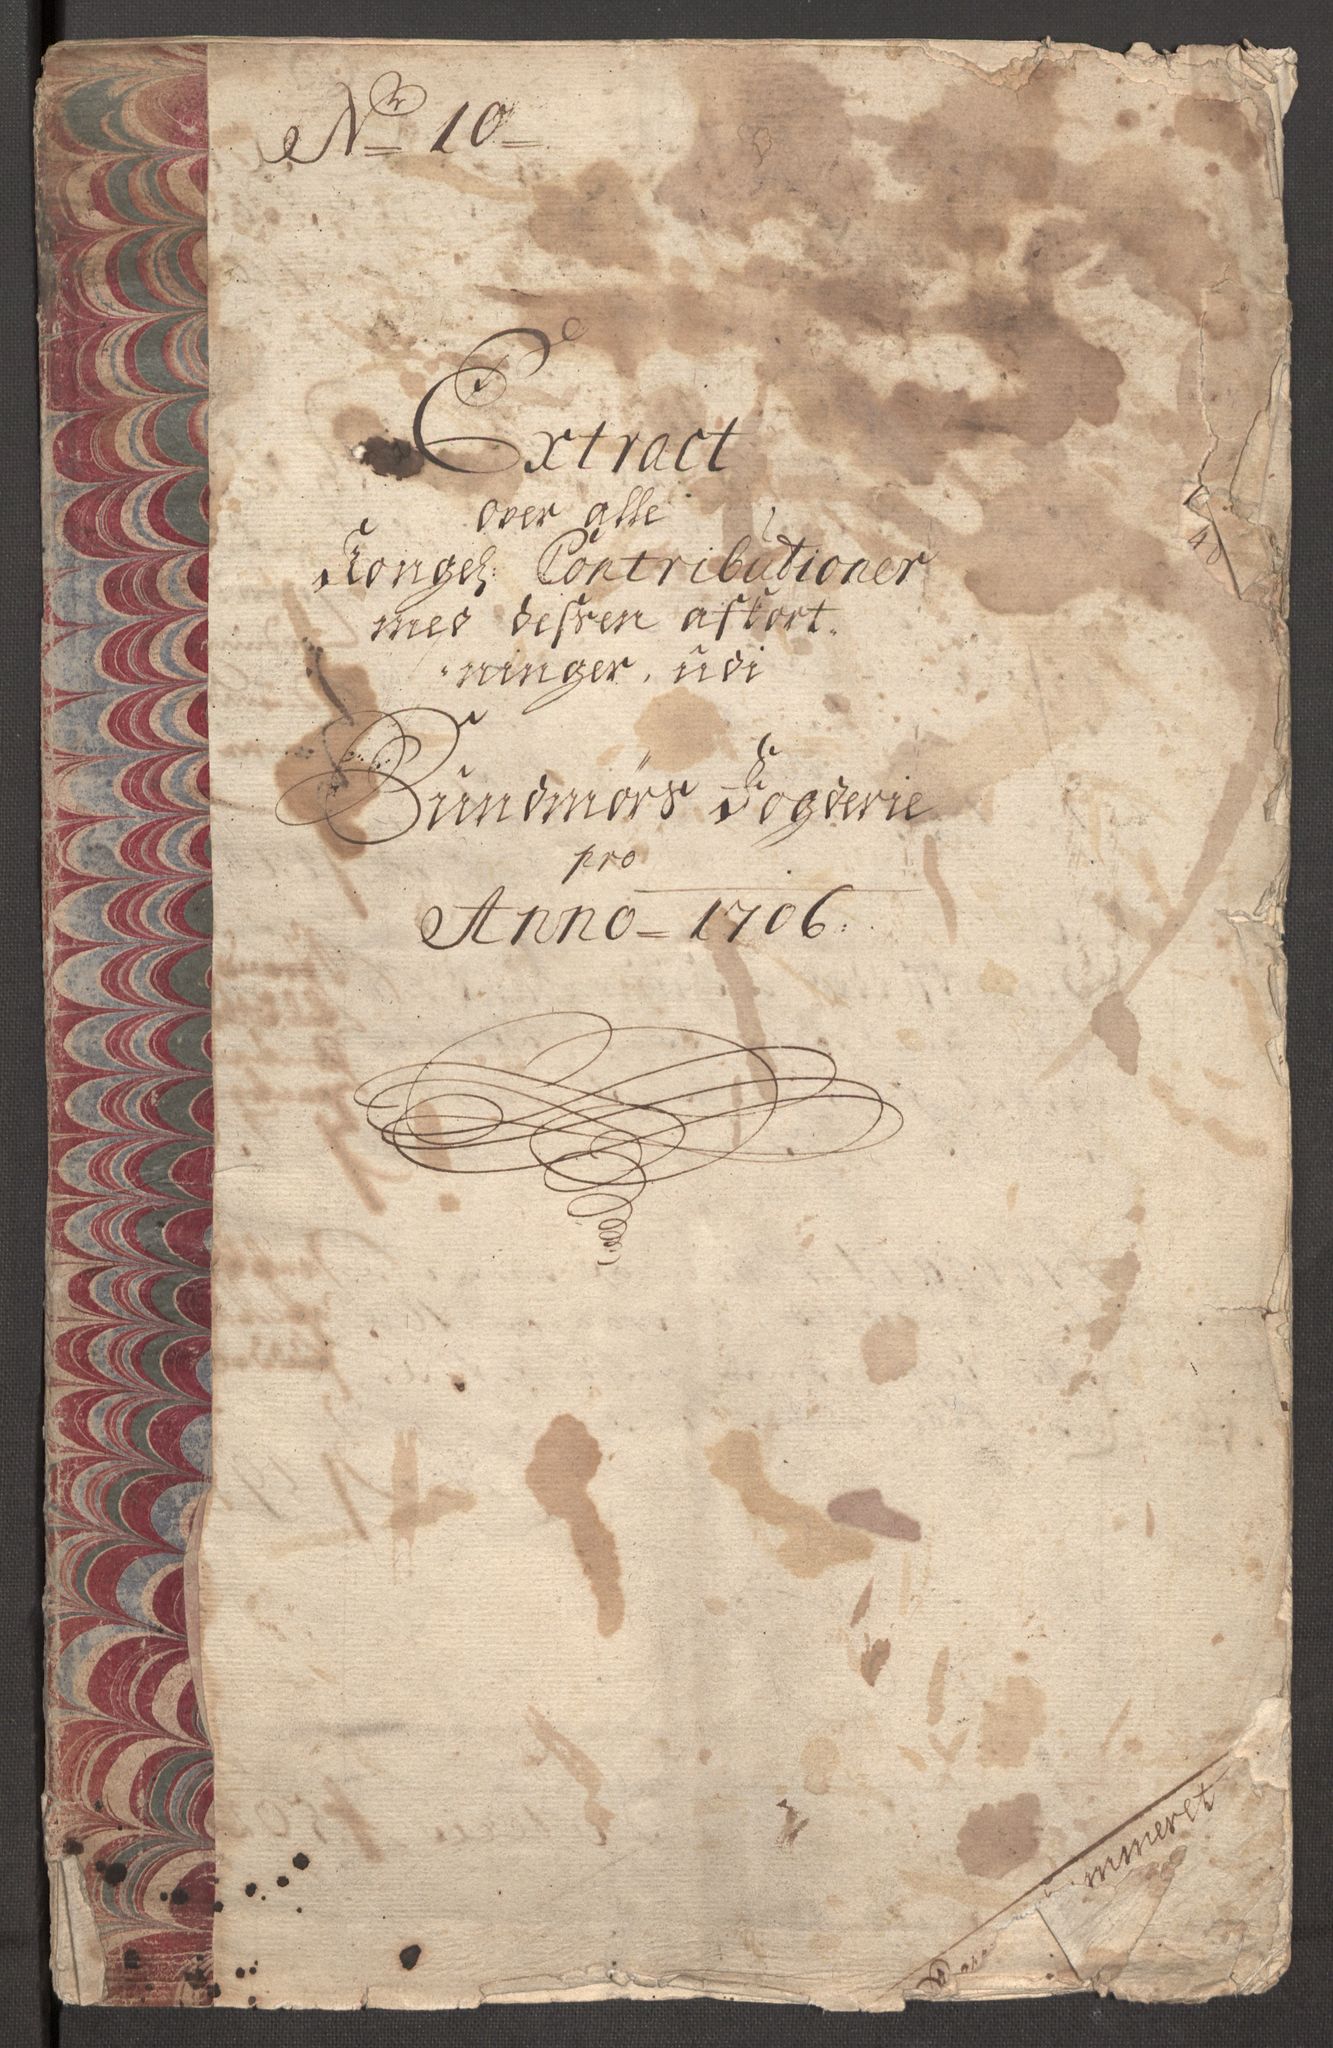 No 10
Extract
over alle
Kongel: Contributioner
med dessen afkort-
ninger, udi
Sundmørs Fogderie
pro
Anno 1706.